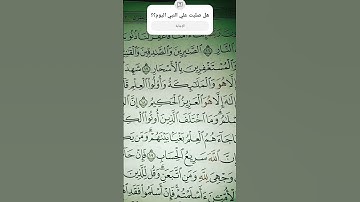 هل صليت على النبي اليوم؟؟
ٱلنَّارِ ١٦ ٱلصَّٰبِرِينَ وَٱلصَّٰدِقِينَ
وَٱلۡمُسۡتَغۡفِرِينَ بِٱلۡأَسۡحَارِ ١٧ شَهِدَ
إِلَّا هُوَ وَٱلۡمَلَٰٓئِكَةُ وَأُوْلُواْ ٱلۡعِلۡمِ
إِلَٰهَ إِلَّا هُوَ ٱلۡعَزِيزُ ٱلۡحَكِيمُ ١٨
وَمَا ٱخۡتَلَفَ ٱلَّذِينَ أُوتُواْ
جَآءَهُمُ ٱلۡعِلۡمُ بَغۡيَۢا بَيۡنَهُمۡۗ وَمَن
ٱللَّهَ سَرِيعُ ٱلۡحِسَابِ ١٩ فَإِنۡ
وَجۡهِيَ لِلَّهِ وَمَنِ ٱتَّبَعَنِۗ وَقُل لِّلَّذِينَ
ءَأَسۡلَمۡتُمۡۚ فَإِنۡ أَسۡلَمُواْ فَقَدِ